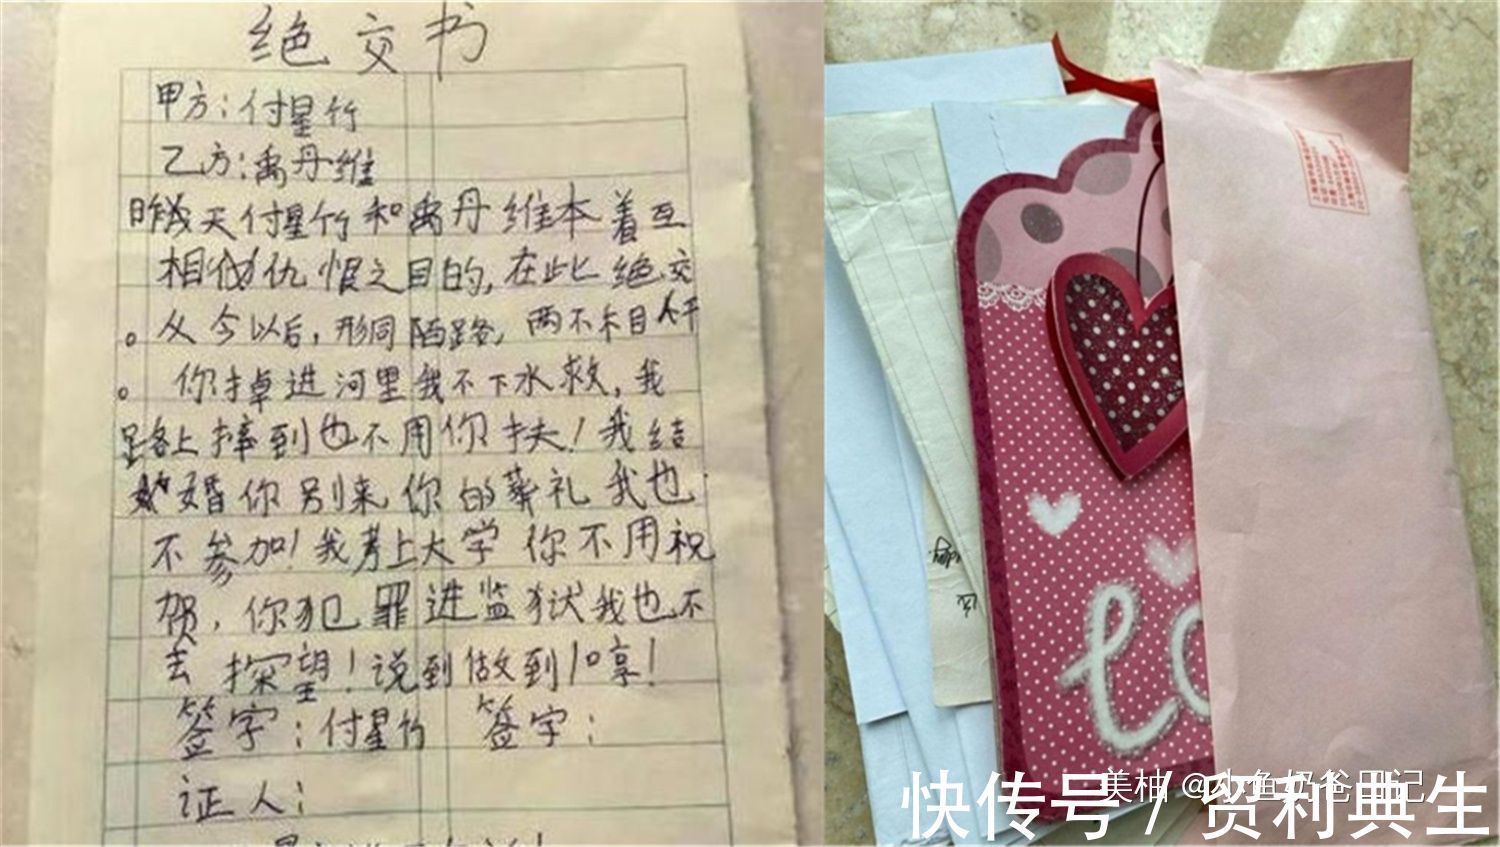 绝交书
甲方：付星竹
乙方：禹丹维
昨天付星竹和禹丹维本着互
相仇恨之目的，在此绝交
。从今以后，形同陌路，两不相干
。你掉进河里我不下水救，我
路上摔到也不用你扶！我结
婚你别来你的葬礼我也
不参加！我考上大学你不用祝
贺，你犯罪进监狱我也不
去探望！说到做到
签字：付星竹 签字：
证人：
lo
美柚 @小鱼奶爸日记
快传号 / 贸利典生